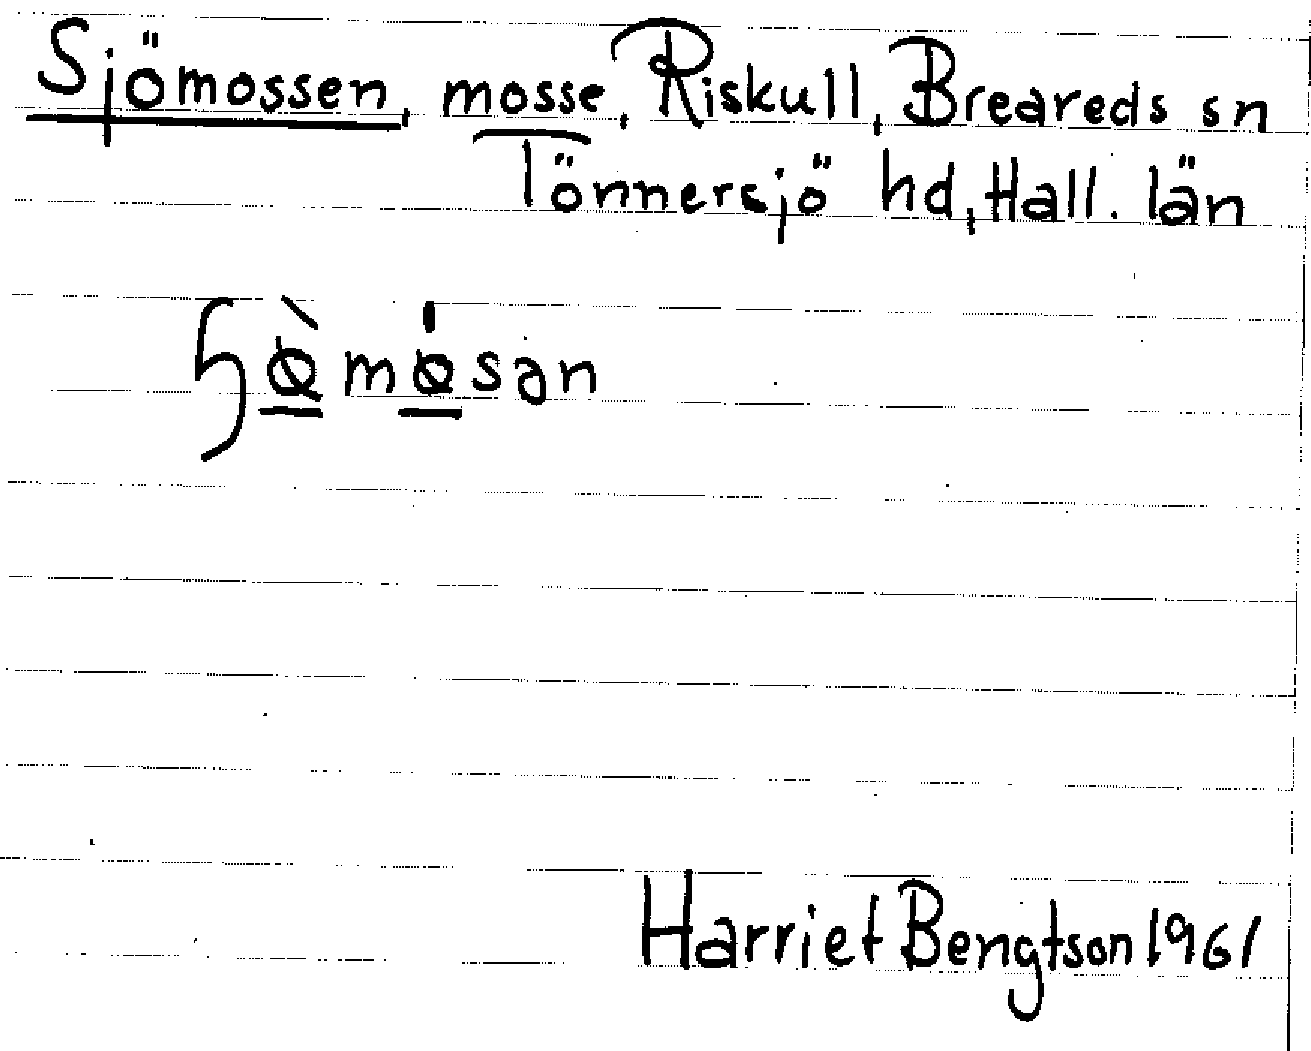 Sjömossen, mosse, Riskull, Breareds sn
Tönnersjö hd, Hall. län
ɧø̀mø̍sən
Harriet Bengtson 1961